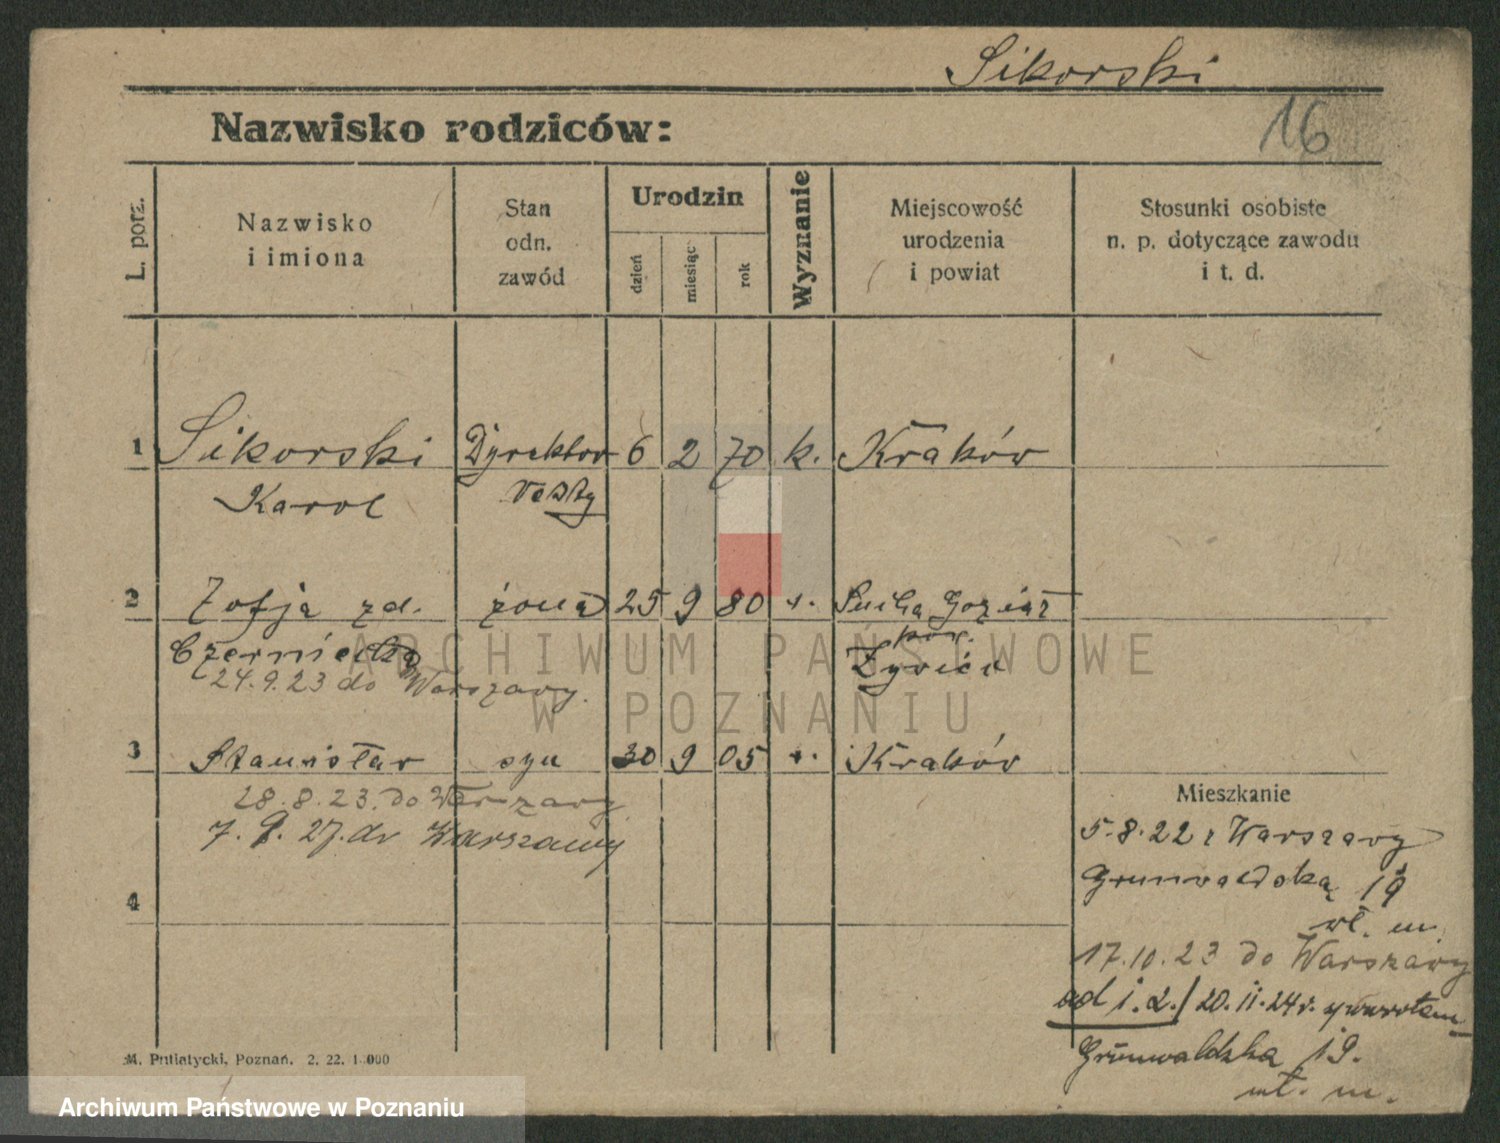 Sikorski
16
Nazwisko rodziców:
L. porz.
Nazwisko
i imiona
Stan
odn.
zawód
Urodzin
dzień
miesiąc
rok
Wyznanie
Miejscowość
urodzenia
i powiat
Stosunki osobiste
n. p. dotyczące zawodu
i t. d.
1 Sikorski Dyrektor 6 2 70 k. Kraków
Karol
2 Zofja zd. żona 25 9 80 Sucha
pow.
Czerniecka Żywiec
24.9.23 do Warszawy.
3 Stanisław syn 30 9 05 Kraków
28.8.23. do Warszawy
7. 9. 27. do Warszawy
4
Mieszkanie
5.8.22 z Warszawy
Grunwaldska 19
wł. m.
17.10.23 do Warszawy
ad 1. 2./ 20. 11. 24 r.
Grunwaldzka 19.
wł. m.
M. Putiatycki, Poznań. 2. 22. 1.000
ARCHIWUM PAŃSTWOWE
W POZNANIU
Archiwum Państwowe w Poznaniu